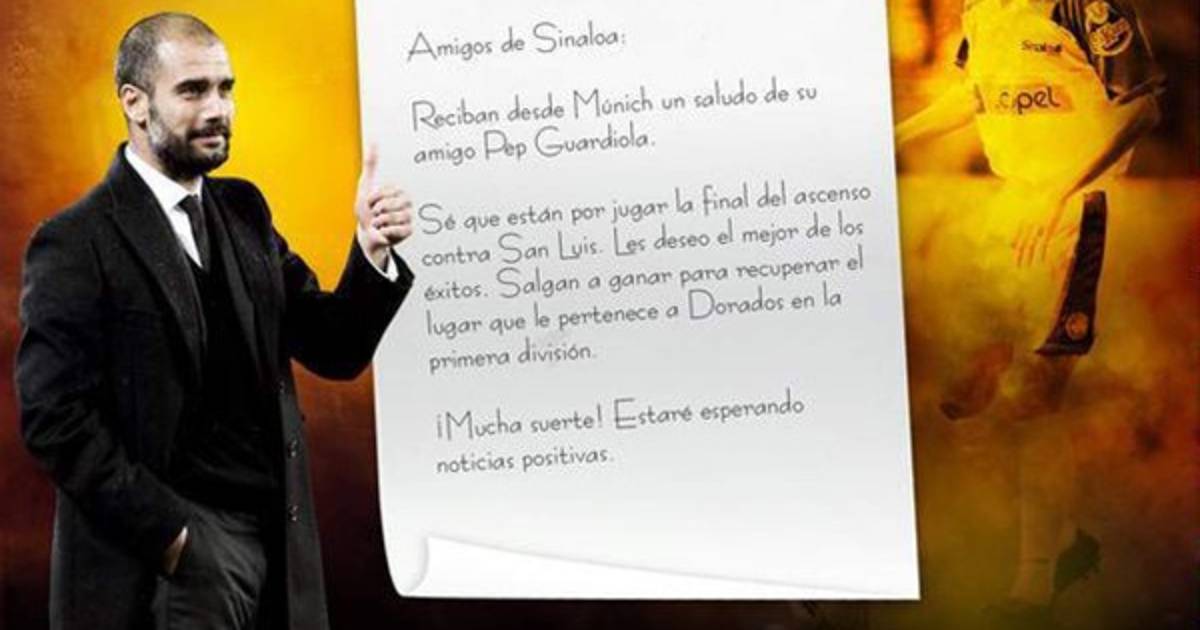 Amigos de Sinaloa:
Reciban desde Múnich un saludo de su
amigo Pep Guardiola.
Sé que están por jugar la final del ascenso
contra San Luis. Les deseo el mejor de los
éxitos. Salgan a ganar para recuperar el
lugar que le pertenece a Dorados en la
primera división.
¡Mucha suerte! Estaré esperando
noticias positivas.
.opel